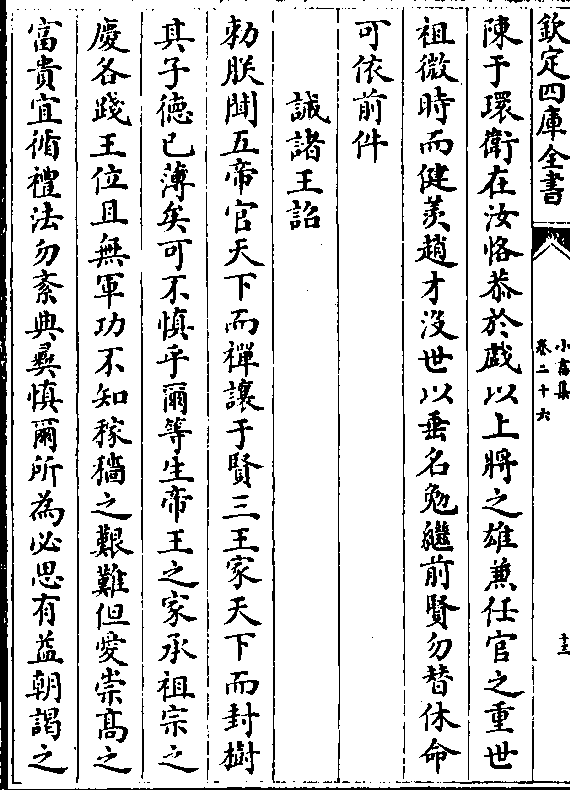 欽定四庫全書
小畜集
卷二十六
十三
陳于環衛在汝恪恭於戲以上將之雄兼任官之重世
祖微時而健羨趙才沒世以垂名勉繼前賢勿替休命
可依前件
誡諸王詔
勅朕聞五帝官天下而禪讓于賢三王家天下而封樹
其子德已薄矣可不慎乎爾等生帝王之家承祖宗之
慶各踐王位且無軍功不知稼穡之艱難但愛崇髙之
富貴宜循禮法勿紊典彞慎爾所為必思有益朝謁之